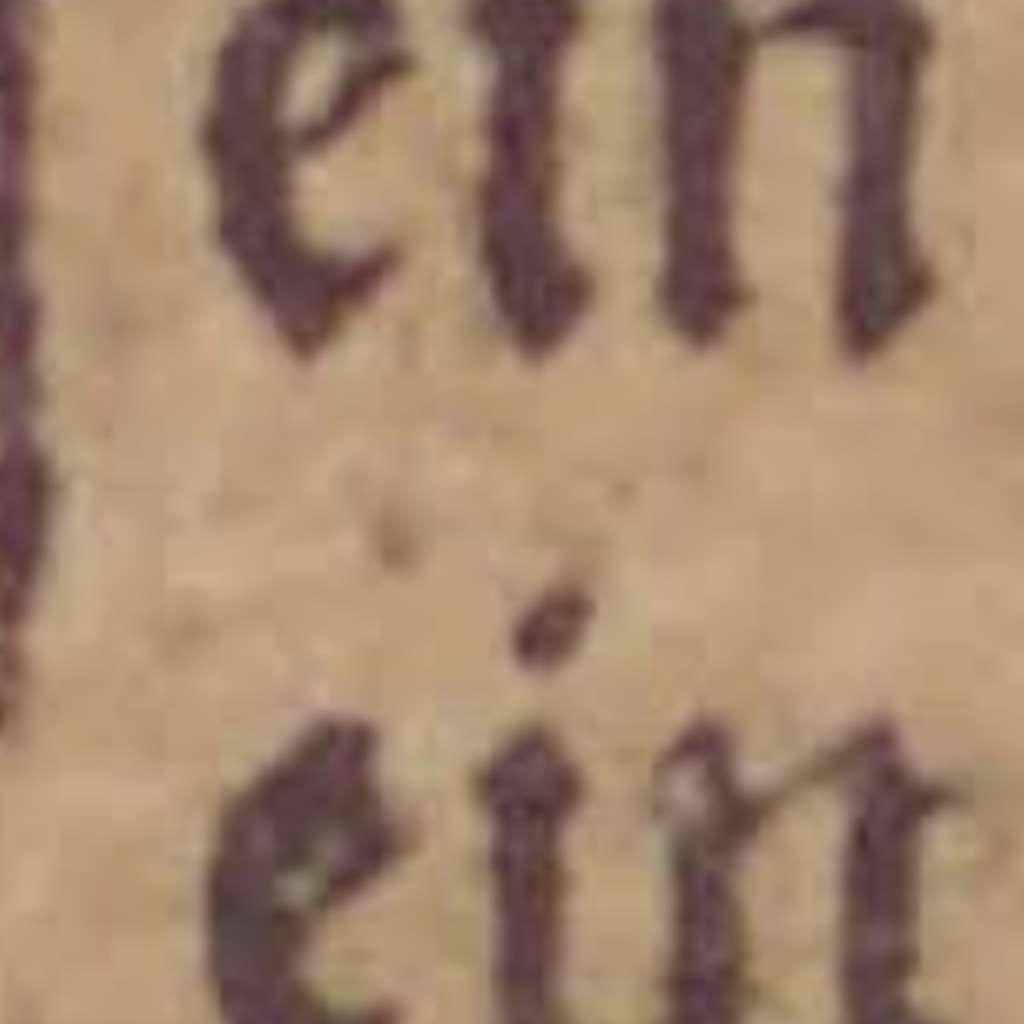 ein
ein